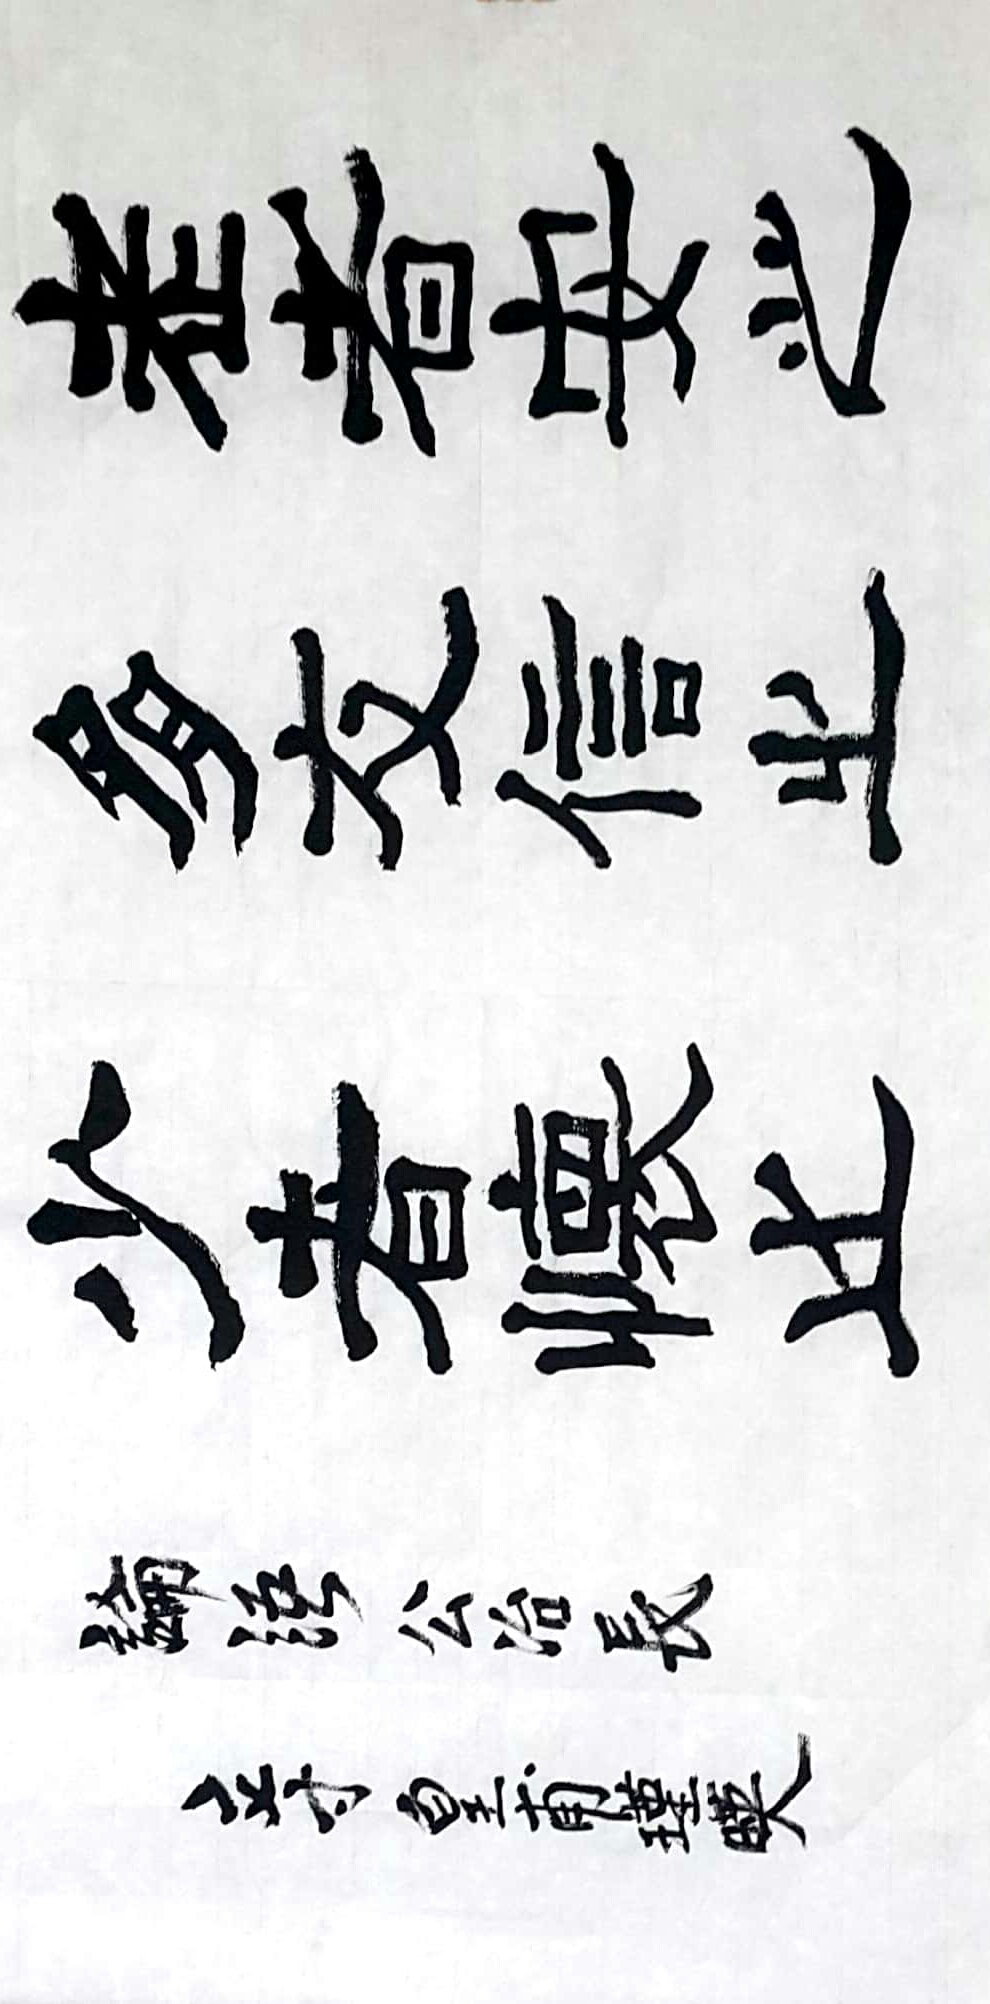 老者安之
朋友信之
少者懷之
論語公冶長
皇甫